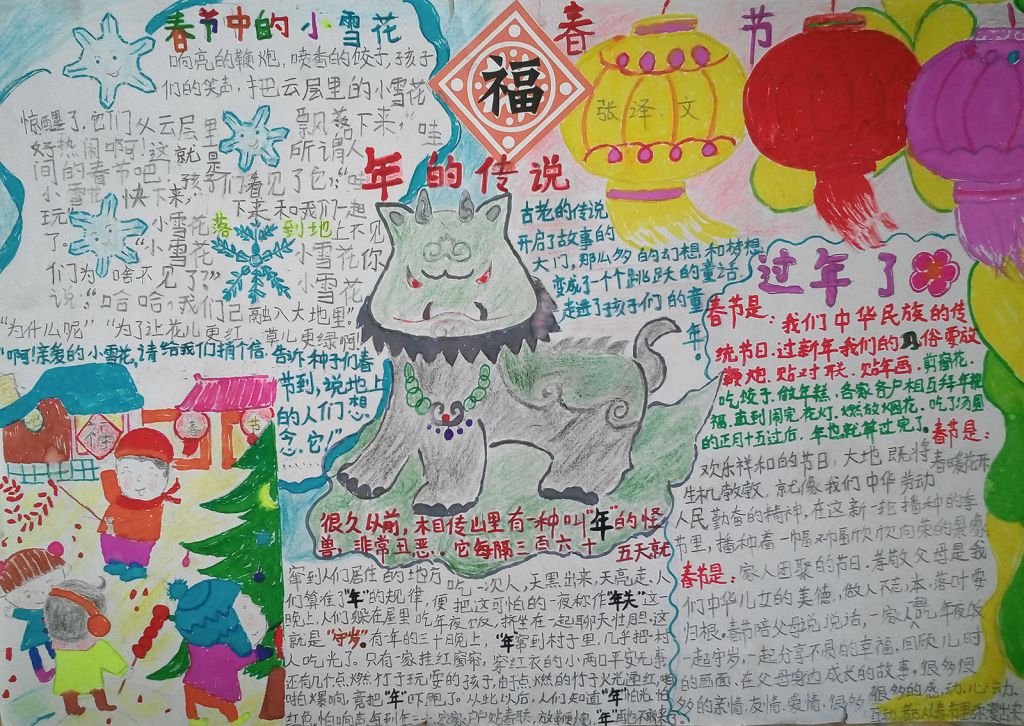 春节中的小雪花
响亮的鞭炮,喷香的饺子,孩子
们的笑声,把云层里的小雪花
惊醒了,它们从云层里飘落下来,“哇
好热闹啊!这就是所谓人
间的春节吧!”孩子们看见了它:“哇
小雪花快下来,下来和我们一起
玩。”小雪花落到地上不见
了。“小雪花小雪花你
们为啥不见了?”小雪花
说:“哈哈,我们已融入大地里。”
“为什么呢”“为了让花儿更红,草儿更绿啊!”
“啊!亲爱的小雪花,请给我们捎个信,告诉种子们春
节到,说地上
的人们想
念它!”
福
春节
张泽文
年的传说
古老的传说
开启了故事的
大门,那么多的幻想和梦想
变成了一个个跳跃的童话
走进了孩子们的童
年。
很久以前,木目传山里有一种叫“年”的怪
兽,非常丑恶。它每隔三百六十五天就
窜到人们居住的地方吃一次人,天黑出来,天亮走,人
们算住了“年”的规律,便把这可怕的一夜称作“年关”这一
晚上,人们躲在屋里吃年夜饭,挤坐在一起聊天壮胆。这
就是“守岁”。有年的三十晚上,“年窜到村子里,几乎把一村
人吃光了。只有一家挂红窗帘,穿红衣的小两口平安无事
还有几个点燃竹子玩耍的孩子,由于点燃的竹子火光通红,啪
啪爆响,竟把“年”吓跑了。从此以后,人们知道“年”怕光,怕
过年了
春节是:我们中华民族的传
统节日.过新年我们的风俗要放
鞭炮.贴对联.贴年画.剪窗花.
吃饺子.做年糕.各家各户相互拜年祝
福.直到闹完花灯.燃放烟花.吃了汤圆
的正月十五过后.年也就算过完了。
春节是:
欢乐祥和的节日,大地既将春暖花开
生机勃勃,就像我们中华劳动
人民勤奋的精神,在这新一轮播种的季
节里,播种着一幅对幅欣欣向荣的景象
春节是:家人团聚的节日,孝敬父母是我
们中华儿女的美德,做人不忘,本,落叶要
归根。春节陪父母说说话,一家人吃年夜饭
一起守岁,一起分享不同的幸福,回顾儿时
的画面、在父母身边成长的故事,很多很
多的亲情、友情、爱情、很多很多的感动、心动、